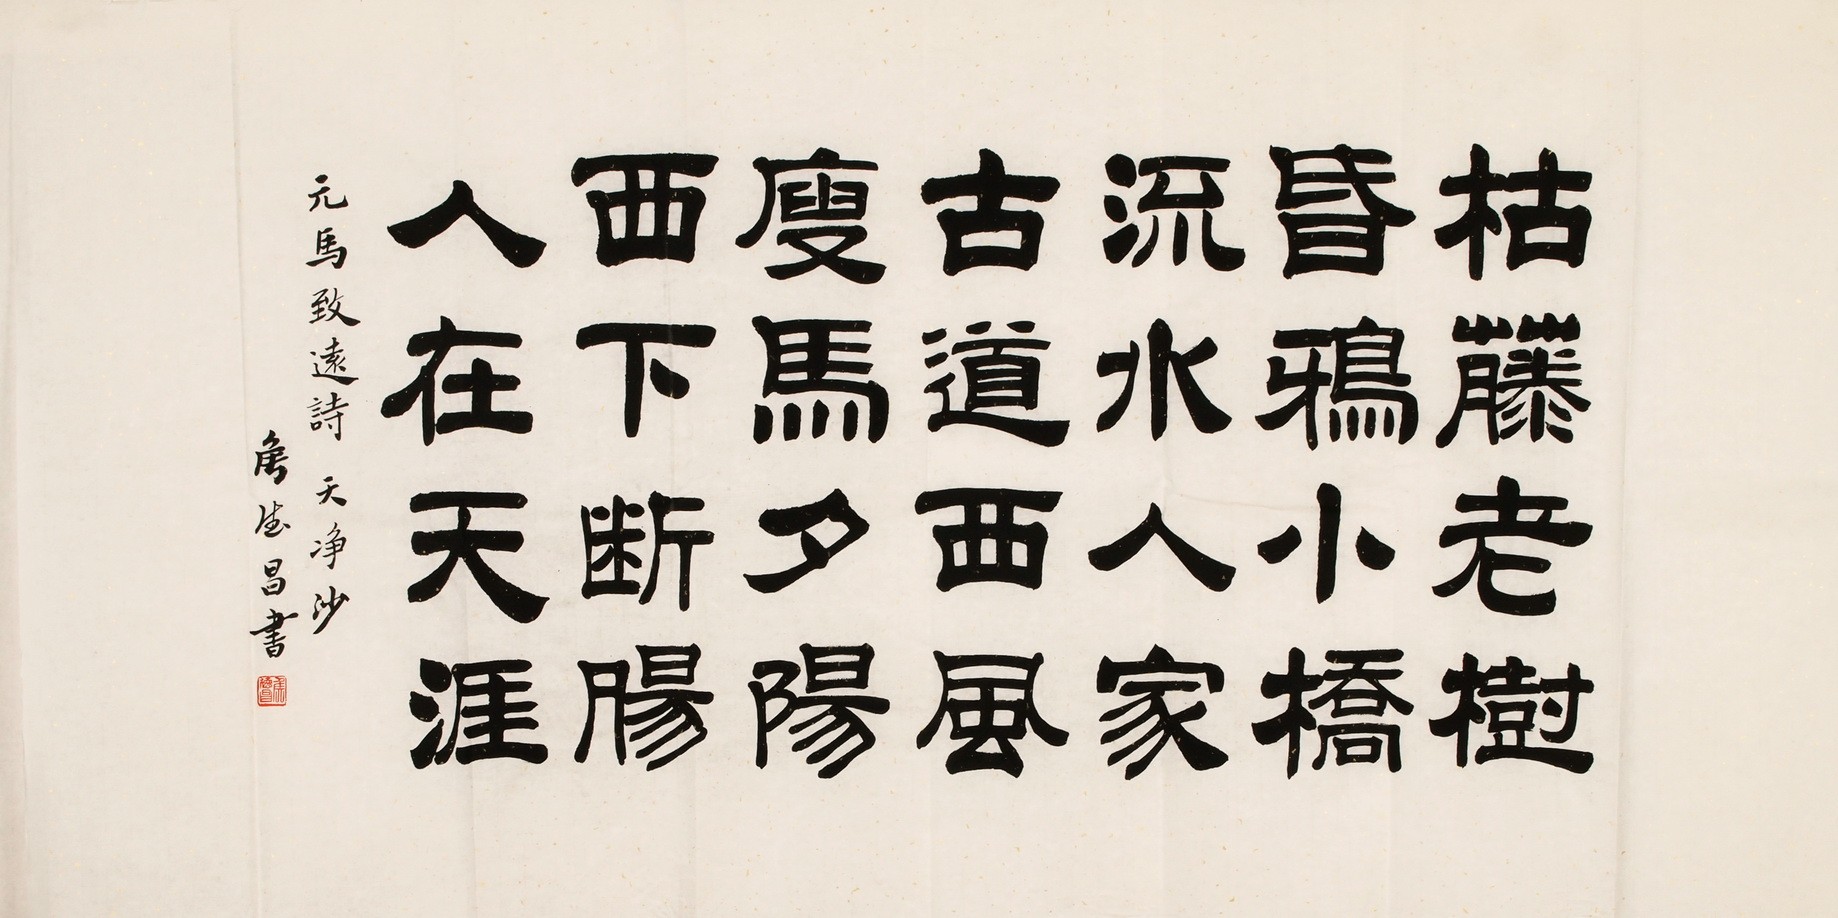 枯藤老樹
昏鴉小橋
流水人家
古道西風
廋馬夕陽
西下断腸
人在天涯
元馬致遠詩 天净沙
德昌書